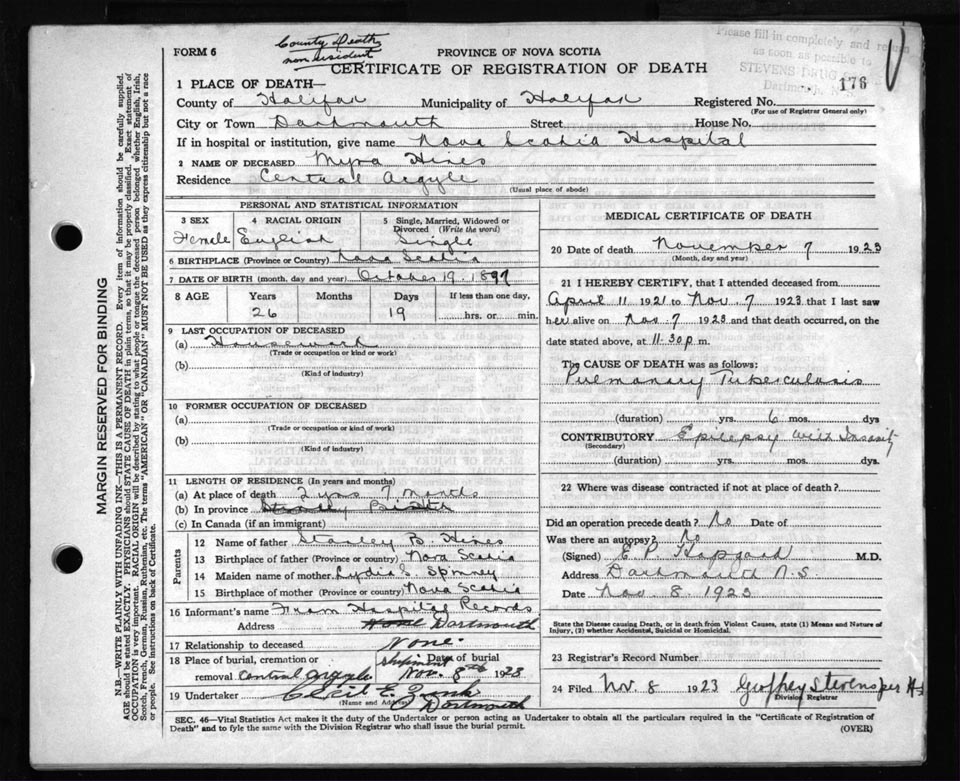 County Death
non resident
Please fill in completely and return
as soon as possible to
STEVENS DRUG
Dartmouth, N.
176
FORM 6
PROVINCE OF NOVA SCOTIA
CERTIFICATE OF REGISTRATION OF DEATH
1 PLACE OF DEATH—
County of Halifax Municipality of Halifax Registered No.
(For use of Registrar General only)
City or Town Dartmouth Street House No.
If in hospital or institution, give name Nova Scotia Hospital
2 NAME OF DECEASED Myra Hines
Residence Central Argyle
(Usual place of abode)
PERSONAL AND STATISTICAL INFORMATION
3 SEX Female
4 RACIAL ORIGIN English
5 Single, Married, Widowed or Divorced (Write the word) Single
6 BIRTHPLACE (Province or Country) Nova Scotia
7 DATE OF BIRTH (month, day and year) October 19. 1897
8 AGE Years Months Days If less than one day,
26 19 hrs. or min.
9 LAST OCCUPATION OF DECEASED
(a) Housework
(Trade or occupation or kind or work)
(b)
(Kind of industry)
10 FORMER OCCUPATION OF DECEASED
(a)
(Trade or occupation or kind of work)
(b)
(Kind of industry)
11 LENGTH OF RESIDENCE (In years and months)
(a) At place of death 2 yrs 7 months
(b) In province
(c) In Canada (if an immigrant)
Parents
12 Name of father Stanley B. Hines
13 Birthplace of father (Province or country) Nova Scotia
14 Maiden name of mother Lydia Spinney
15 Birthplace of mother (Province or country) Nova Scotia
16 Informant's name From Hospital Records
Address None Dartmouth
17 Relationship to deceased None.
18 Place of burial, cremation or removal Central Argyle
Shipment Date of burial
Nov. 8th 1923
19 Undertaker Cecil E. Zink
(Name and Address) Dartmouth
MEDICAL CERTIFICATE OF DEATH
20 Date of death November 7 1923
(Month, day and year)
21 I HEREBY CERTIFY, that I attended deceased from
April 11 1921 to Nov. 7 1923 that I last saw
her alive on Nov. 7 1923 and that death occurred, on
date stated above, at 11.30 p.m.
The CAUSE OF DEATH was as follows:
Pulmonary Tuberculosis
(duration) yrs. 6 mos. dys
CONTRIBUTORY Epilepsy with Insanity
(Secondary)
(duration) yrs. mos. dys.
22 Where was disease contracted if not at place of death?
Did an operation precede death? No Date of
Was there an autopsy? No
(Signed) E. P. Hapgood M.D.
Address Dartmouth N.S
Date Nov. 8. 1923
State the Disease causing Death, or in death from Violent Causes, state (1) Means and Nature of
Injury, (2) whether Accidental, Suicidal or Homicidal.
23 Registrar's Record Number
24 Filed Nov. 8 1923 Geoffrey Stevens per
Division Registrar
SEC. 46—Vital Statistics Act makes it the duty of the Undertaker or person acting as Undertaker to obtain all the particulars required in the "Certificate of Registration of
Death" and to fyle the same with the Division Registrar who shall issue the burial permit. (OVER)
MARGIN RESERVED FOR BINDING
N.B.—WRITE PLAINLY WITH UNFADING INK—THIS IS A PERMANENT RECORD. Every item of information should be carefully supplied.
AGE should be stated EXACTLY. PHYSICIANS should STATE CAUSE OF DEATH in plain terms, so that it may be properly classified. Exact statement of
OCCUPATION is very important. RACIAL ORIGIN will be described by stating to what people or tongue the deceased person belonged whether English, Irish,
Scotch, French, German, Russian, Ruthenian, etc. The terms "AMERICAN" OR "CANADIAN" MUST NOT BE USED as they express citizenship but not a race
or people. See instructions on back of Certificate.